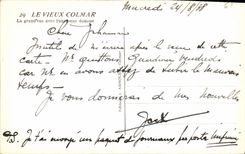 29 LE VIEUX COLMAR
La grand'rue avec
Mercredi 24/8/38
Cher Johannes
Inutile de m'écrire après le reçu de cette
carte - Nr quittons vendredi
car Nr en avons assez de suivre le mauvais
temps -
Je vous donnerai de nos nouvelles
Jack
PS) Je t'ai envoyé un paquet de journaux par poste